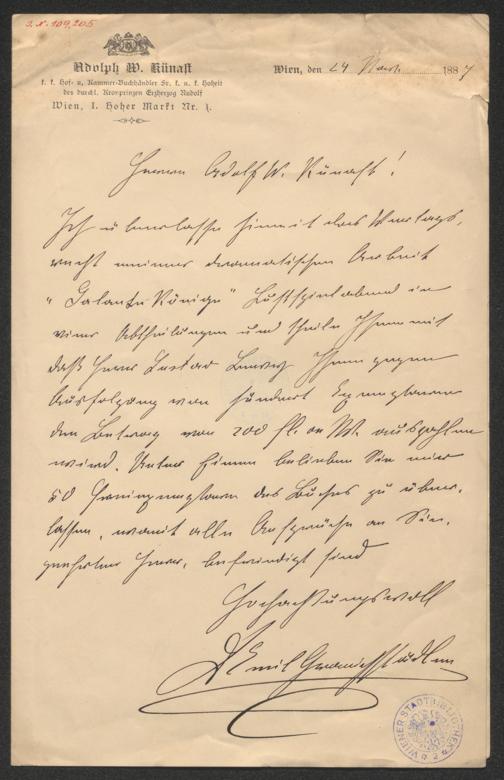 I. N. 109,205
Adolph W. Künast
k. k. Hof- u. Kammer-Buchhändler Sr. k. u. k. Hoheit
des durchl. Kronprinzen Erzherzog Rudolf
Wien, I. Hoher Markt Nr. 1.
Wien, den 24 Nov. 1887
Herrn Adolf W. Künast!
Ich überlasse hiemit das Verlags-
recht meiner dramatischen Arbeit
„Galante Könige“ Lustspielabend in
vier Abtheilungen und theile Ihnen mit
daß Herr Gustav Ihnen gegen
Ausfolgung von hundert Exemplaren
den Betrag von 200 fl. ö W. auszahlen
wird. Unter Einem belieben Sie mir
50 Freiexemplare des Buches zu über-
lassen, womit alle Ansprüche an Sie,
geehrter Herr, befriedigt sind
Hochachtungsvoll
DrEmil Granichstädten
WIENER STADTBIBLIOTHEK